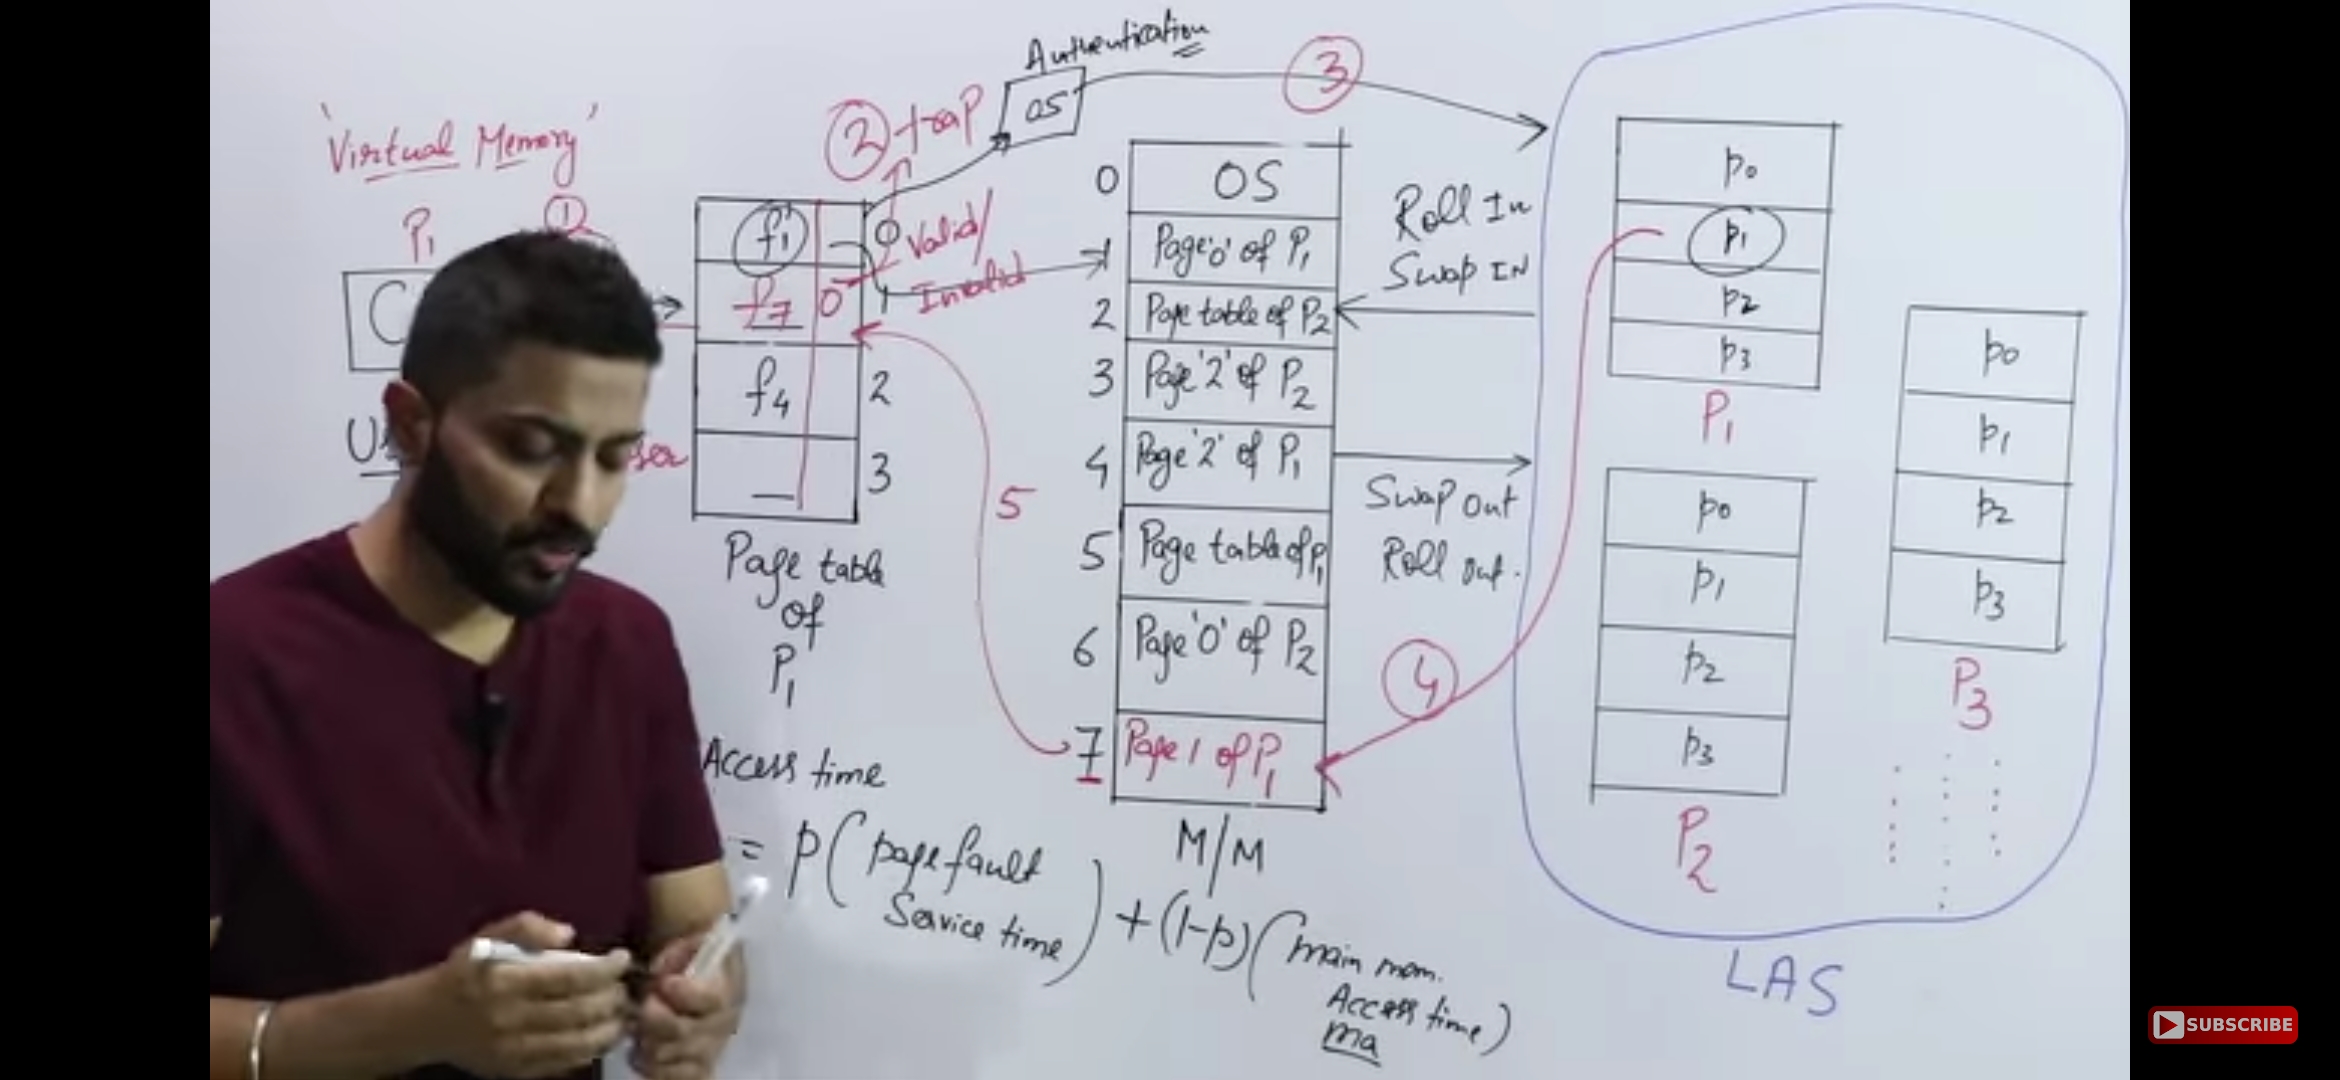 'Virtual Memory'
P1
1
2 trap
Authentication
OS
3
f1 0
Valid/
Invalid
f7 0 1
f4 2
3
Page table
of
P1
5
0 OS
1 Page '0' of P1
2 Page table of P2
3 Page '2' of P2
4 Page '2' of P1
5 Page table of P1
6 Page '0' of P2
7 Page 1 of P1
M/M
Roll In
Swap IN
Swap Out
Roll out.
4
p0
p1
p2
p3
P1
p0
p1
p2
p3
P2
p0
p1
p2
p3
P3
LAS
Access time
= p(page fault
Service time) + (1-p)(main mem.
Access time)
ma
SUBSCRIBE